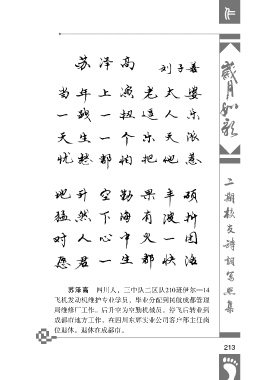 作
苏泽高 刘子善
当年上演老太婆
一跳一扭逗人乐
天生一个乐天派
忧愁都怕把他惹
地升空勤果丰硕
猛然下海有波折
对人心中火一团
愿君一生都快活
苏泽高 四川人,三中队二区队210班伊尔—14
飞机发动机维护专业学员。毕业分配到民航成都管理
局维修厂工作。后升空为空勤机械员。停飞后转业到
成都市地方工作。在四川东辉实业公司客户部主任岗
位退休。退休在成都市。
岁月如歌
二期校友诗词写照集
213